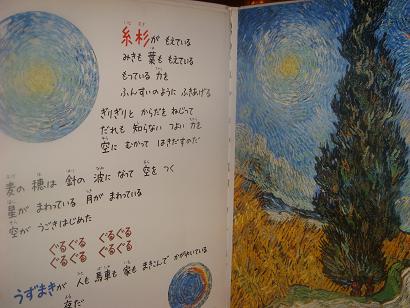 糸杉が もえている
みきも 葉も もえている
もっている 力を
ふんすいのように ふきあげる
ぎりぎりと からだを ねじって
だれも 知らない つよい 力を
空に むかって はきだすのだ
麦の 穂は 針の 波に なって 空を つく
星が まわっている 月が まわっている
空が うごきはじめた
ぐるぐる ぐるぐる
ぐるぐる ぐるぐる
うずまきが 人も 馬車も 家も まきこんで かがやいている
夜だ